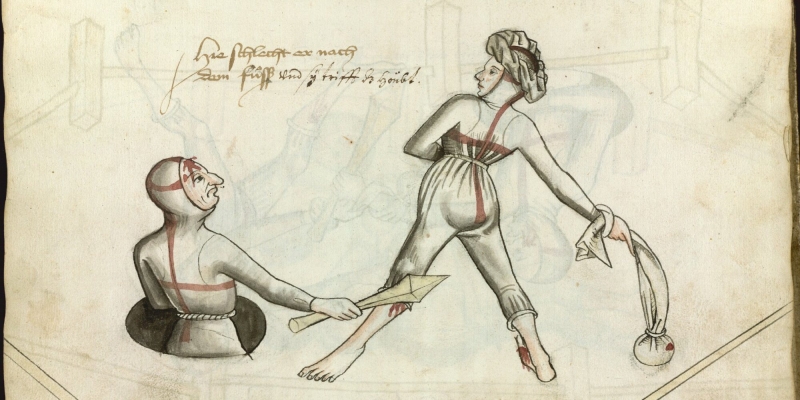 Hie schlecht er nach
dem fuoß und sy triff dz höubt.